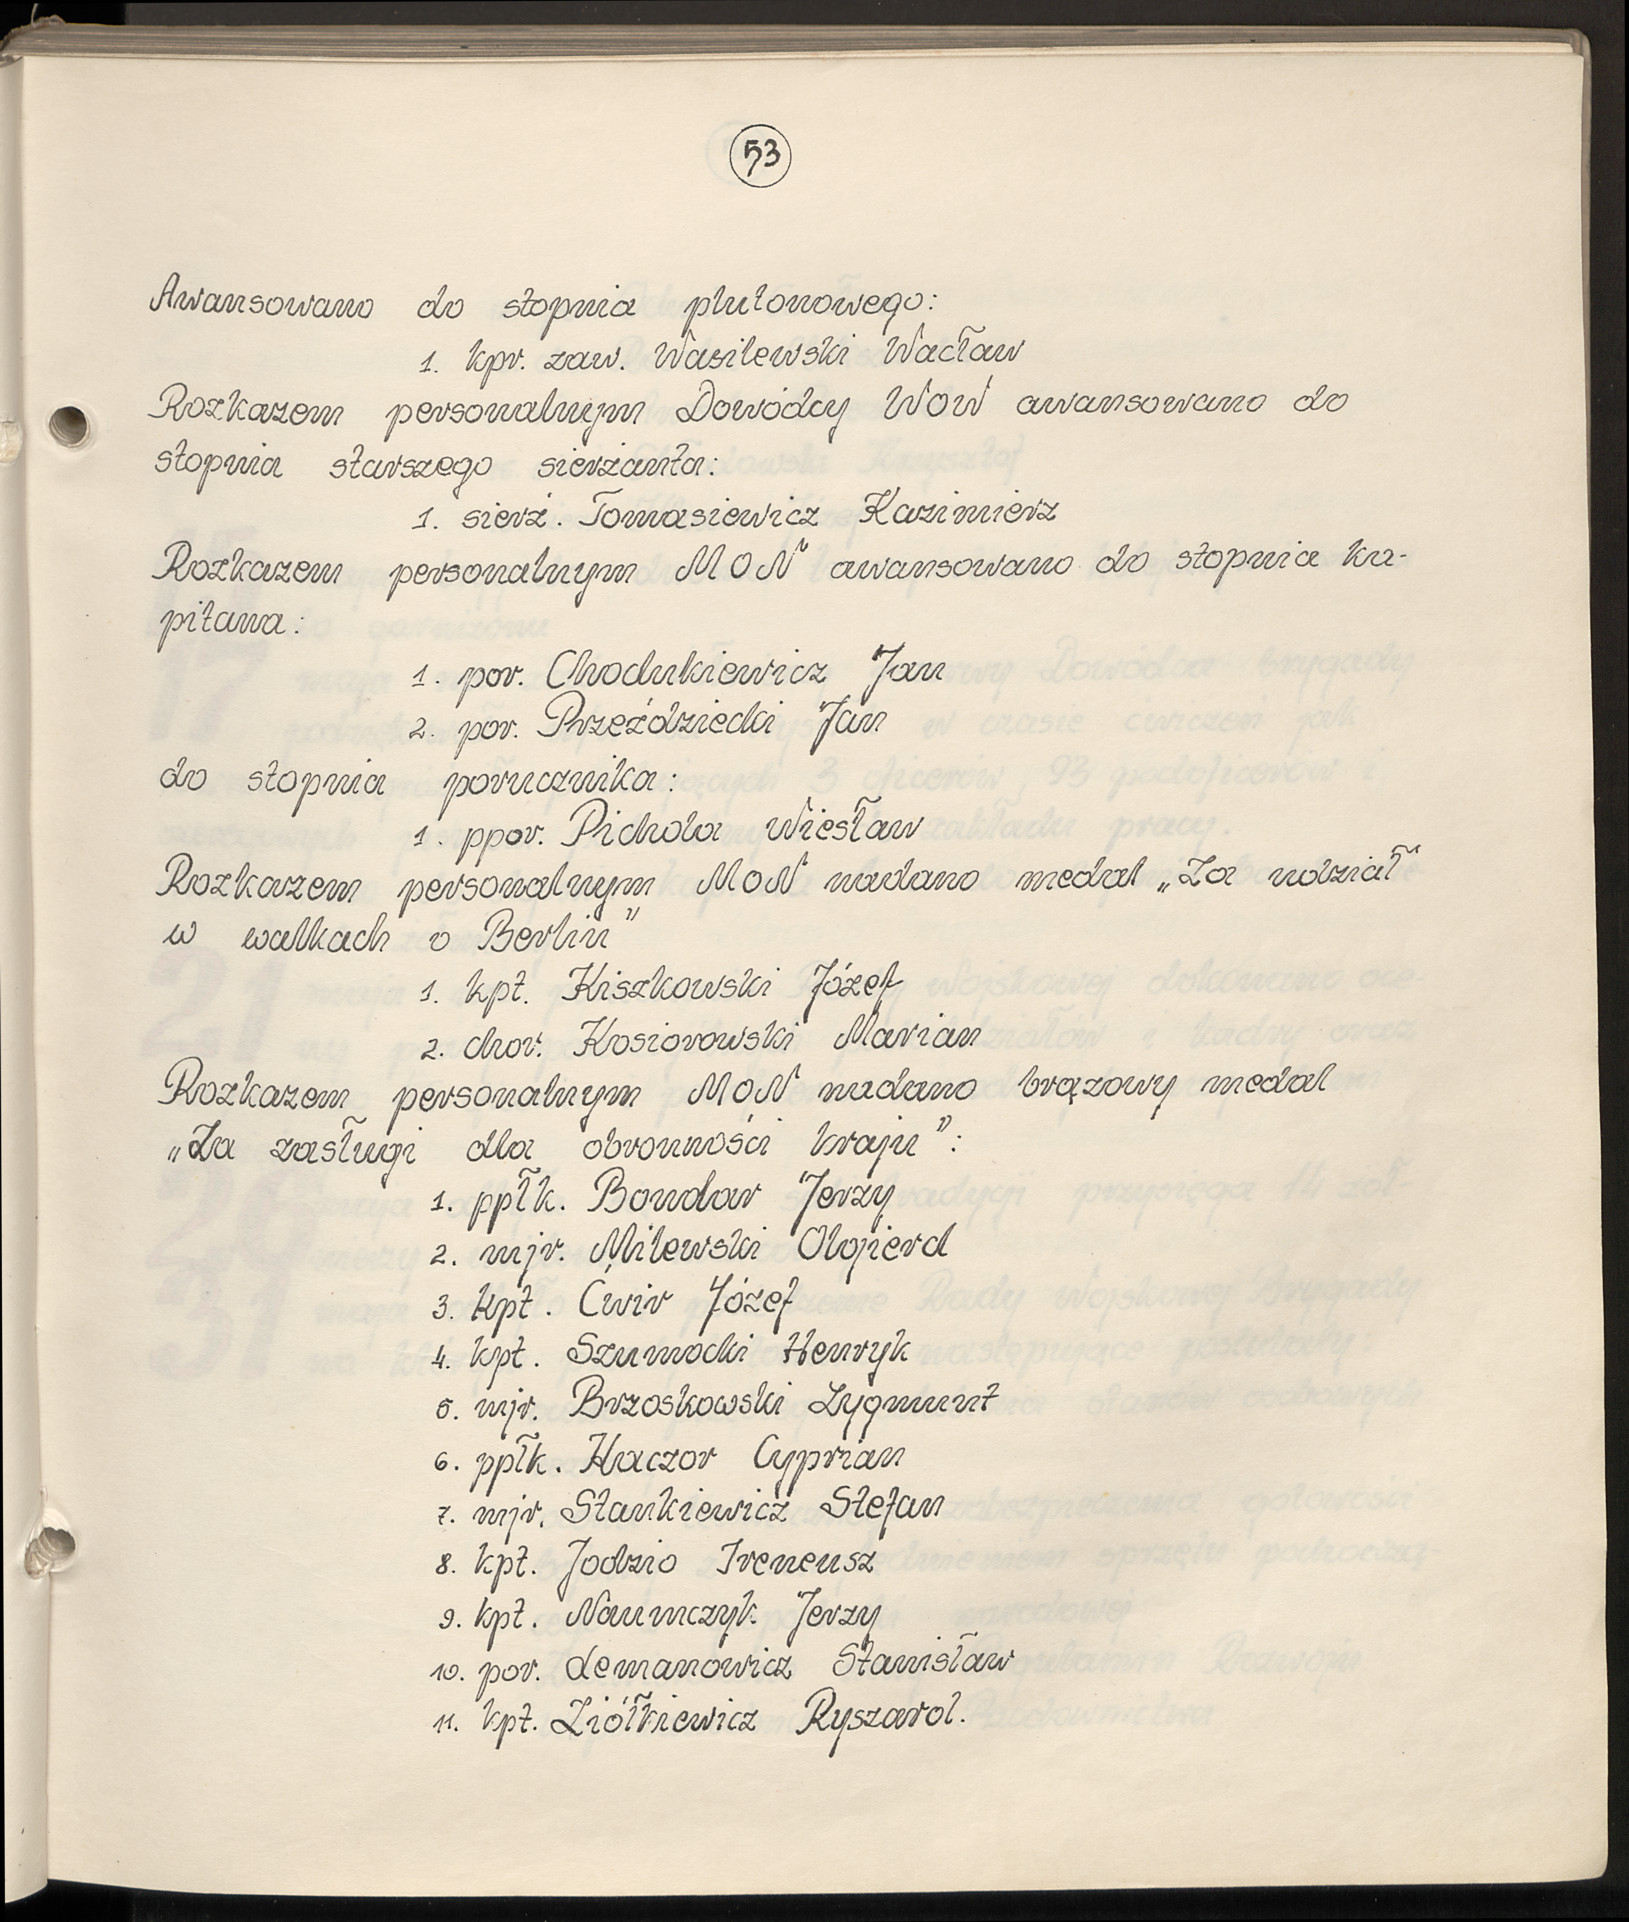 53
Awansowano do stopnia plutonowego:
1. kpr. zaw. Wasilewski Wacław
Rozkazem personalnym Dowódcy WOW awansowano do
stopnia starszego sierżanta:
1. sierż. Tomasiewicz Kazimierz
Rozkazem personalnym MON awansowano do stopnia ka-
pitana:
1. por. Chodukiewicz Jan
2. por. Przeździecki Jan
do stopnia porucznika:
1. ppor. Pichola Wiesław
Rozkazem personalnym MON nadano medal „Za udział
w walkach o Berlin"
1. kpt. Kiszkowski Józef
2. chor. Kosiorowski Marian
Rozkazem personalnym MON nadano brązowy medal
„Za zasługi dla obronności kraju":
1. ppłk. Bondar Jerzy
2. mjr. Milewski Olgierd
3. kpt. Ćwir Józef
4. kpt. Szumocki Henryk
5. mjr. Brzoskowski Zygmunt
6. ppłk. Kaczor Cyprian
7. mjr. Stankiewicz Stefan
8. kpt. Jodzio Ireneusz
9. kpt. Naumczyk Jerzy
10. por. Lemanowicz Stanisław
11. kpt. Ziółkiewicz Ryszard.